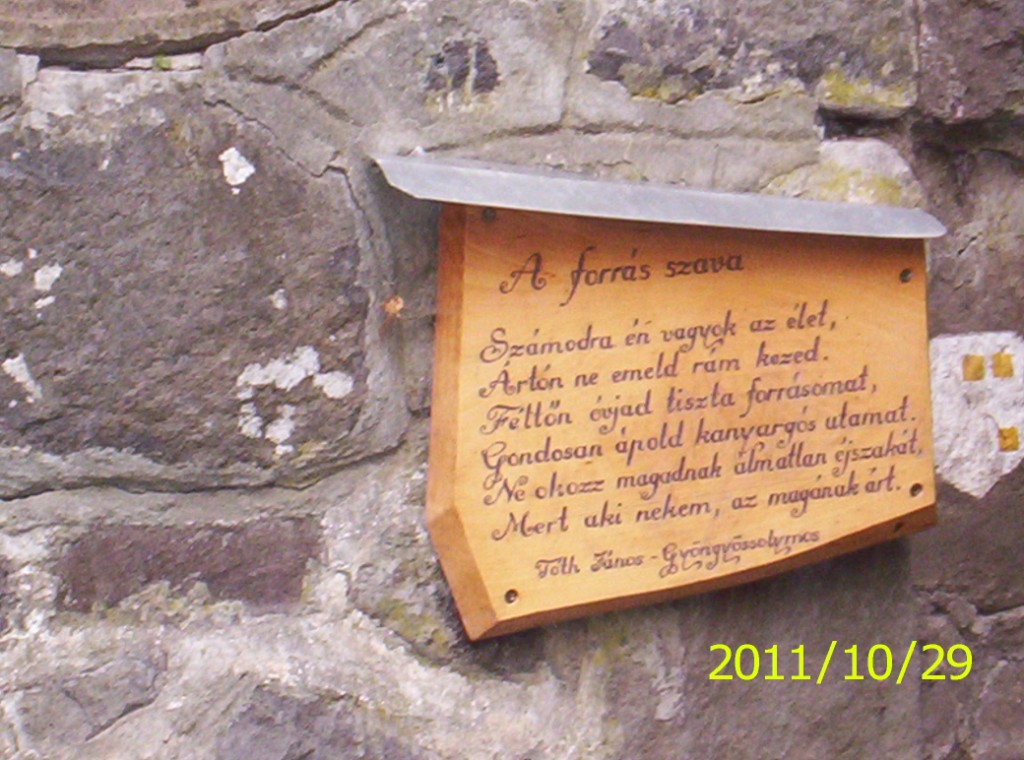 A forrás szava
Számodra én vagyok az élet,
Ártón ne emeld rám kezed.
Féltőn óvjad tiszta forrásomat,
Gondosan ápold kanyargós utamat.
Ne okozz magadnak álmatlan éjszakát,
Mert aki nekem, az magának árt.
Tóth János - Gyöngyössolymos
2011/10/29